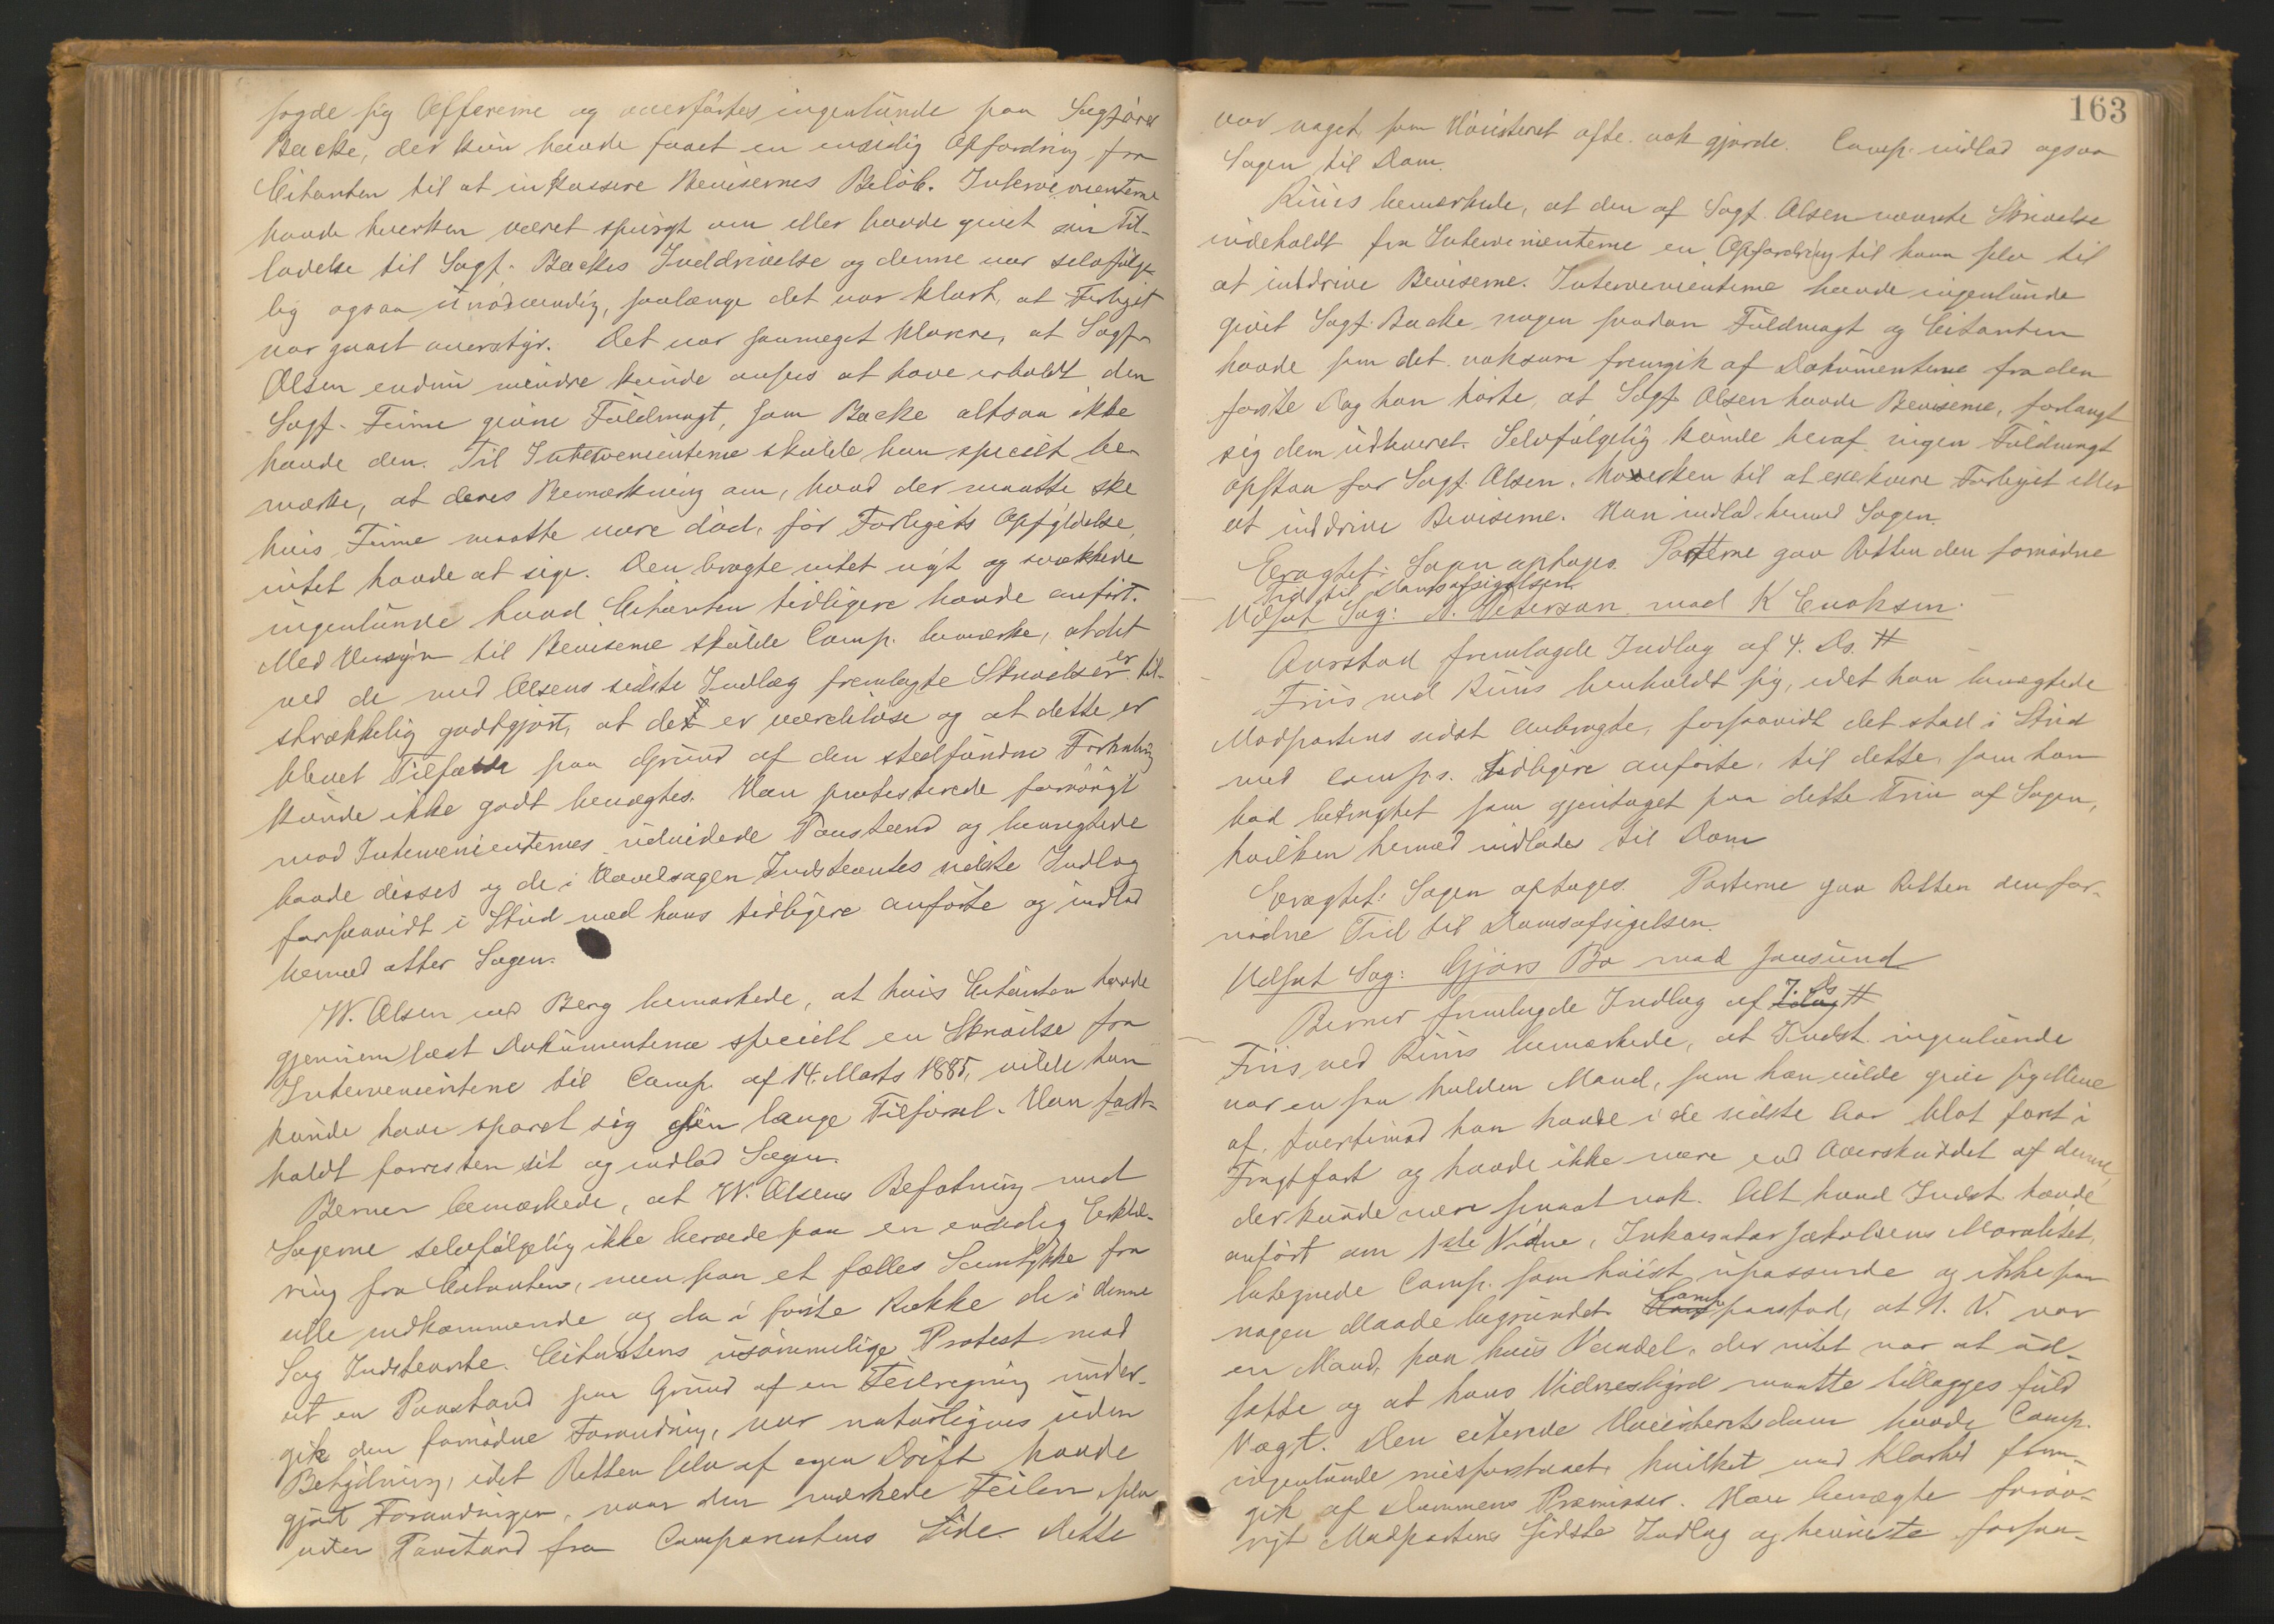 sagde sig Affærerne og overførtes ingenlunde paa Sagfører
Backe, der kun havde faaet en ensidig Opfordring fra
Citanten til at inkassere Bevisernes Beløb. Intervenienterne
havde hverken været spurgt om eller havde givet sin Til-
ladelse til Sagf. Backes Inddrivelse og denne var selvfølge-
lig ogsaa unødvendig, saalænge det var klart, at Forliget
var gaaet overstyr. Det var saameget klarere, at Sagf.
Olsen endnu mindre kunde ansees at have erholdt den
Sagf. Feime givne Fuldmagt, som Backe altsaa ikke
havde den. Til Intervenienterne skulde han specielt be-
mærke, at deres Bemærkning om, hvad der maatte ske
hvis Feime maatte være død, før Forligets Opfyldelse
intet havde at sige. Den bragte intet nyt og svækkede
ingenlunde hvad Citanten tidligere havde anført.
Med Hensyn til Beviserne skulde Comp. bemærke, at det
ved de med Olsens sidste Indlæg fremlagte Skrivelser er til-
strækkelig godtgjort, at de er værdiløse og at dette er
blevet Tilfælde paa Grund af den stedfundne Forhaling
kunde ikke godt benægtes. Han protesterede forøvrigt
mod Intervenienternes udvidede Paastand og benegtede
baade disses og de i Hovedsagen Indstevntes sidste Indlæg
forsaavidt i Strid med hans tidligere anførte og indlod
hermed atter Sagen.
W. Olsen ved Berg bemærkede, at hvis Citanten havde
gjennemlæst Dokumenterne specielt en Skrivelse fra
Intervenienterne til Comp. af 14. Marts 1885, vilde han
kunde have sparet sig sin lange Tilførsel. Han fast-
holdt forresten sit og indlod Sagen.
Berner bemærkede, at W. Olsens Befatning med
Sagerne selvfølgelig ikke beroede paa en ensidig Erklæ-
ring fra Citanten, men paa et fælles Samtykke fra
alle vedkommende og da i første Række de i denne
Sag Indstevnte. Citantens usømmelige Protest mod
at en Paastand paa Grund af en Feilregning under-
gik den fornødne Forandring, var naturligvis uden
Betydning, idet Retten selv af egen Drift havde
gjort Forandringen, naar den mærkede Feilen, selv
uden Paastand fra Comparentens Side. Dette
163
var noget som Høiesteret ofte nok gjorde. Comp. indlod ogsaa
Sagen til Dom.
Riiis bemærkede, at den af Sagf. Olsen nævnte Skrivelse
indeholdt fra Intervenienterne en Opfordring til ham selv til
at inddrive Beviserne. Intervenienterne havde ingenlunde
givet Sagf. Backe nogen saadan Fuldmagt og Citanten
havde som det noksom fremgik af Dokumenterne fra den
første Dag han hørte, at Sagf. Olsen havde Beviserne, forlangt
sig dem udleveret. Selvfølgelig kunde heraf ingen Fuldmagt
opstaa for Sagf. Olsen, hverken til at exekvere Forliget eller
at inddrive Beviserne. Han indlod hermed Sagen.
Eragtet: Sagen optages. Parterne gav Retten den fornødne
Tid til Domsafsigelsen.
Udsat Sag: A. Peterson mod K Enoksen.
Aarstad fremlagde Indlæg af 4. Ds. #
Friis ved Riiis henholdt sig, idet han benægtede
Modpartens sidst anbragte, forsaavidt det stod i Strid
med comp.s. tidligere anførte, til dette, som han
bad betragtet som gjentaget paa dette Trin af Sagen,
hvilken hermed indlodes til Dom
Eragtet: Sagen optages. Parterne gav Retten den for-
nødne Tid til Domsafsigelsen.
Udsat Sag: Gjørs Bo mod Jansund
Berner fremlagde Indlæg af 7. Ds #
Friis ved Riiis bemærkede, at Indst. ingenlunde
var en saa holden Mand, som han vilde give sig Mine
af. Tvertimod han havde i de sidste Aar blot faret i
Fragtfart og havde ikke mere end Overskuddet af denne,
der kunde være smaat nok. Alt hvad Indst. havde
anført om 1ste Vidne, Inkassator Jakobsens Moralitet,
betegnede Comp. som høist upassende og ikke paa
nogen Maade begrundet. Comp. paastod, at 1. V. var
en Mand, paa hvis Vandel, der intet var at ud-
sætte og at hans Vidnesbyrd maatte tillægges fuld
Vægt. Den citerede Høiesteretsdom havde Comp.
ingenlunde misforstaaet, hvilket med Klarhed frem-
gik af Dommens Præmisser. Han benægtede forøv-
rigt Modpartens sidste Indlæg og henviste forsaa-